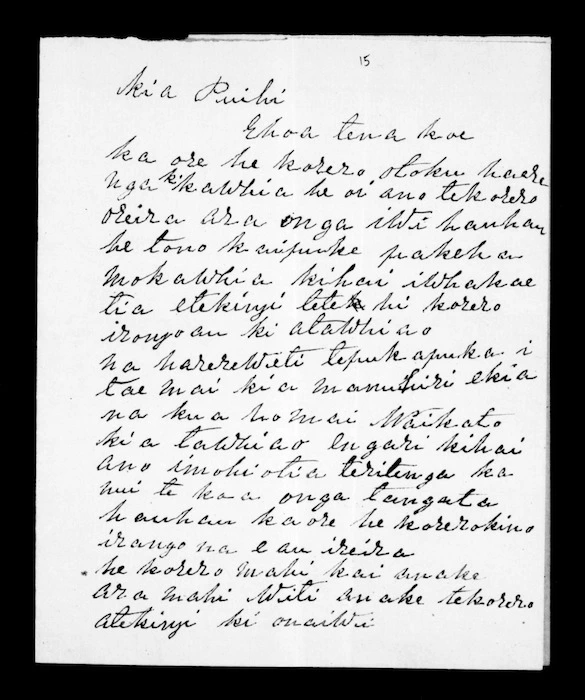 15
Kia Puihi
Ehoa tena koe
ka ore he korero otoku haere
nga ki kawhia he oi ano tekorero
oreira ara onga iwi hauhau
he tono kaipuke pakeha
mokawhia kihai iwhakae
tia etekinyi tetehi korero
irongoau ki atawhiao
na harereweti tepukapuka i
tae mai kia manuhiri ekia
na kua homai Waikato
kia tawhiao Engari kihai
ano imohiotia teritenga ka
nui te koa onga tangata
hauhau kaore he korerokino
irangona e au ireira
he korero mahi kai anake
ara mahi Witi anake tekorero
atekinyi ki onaiwi